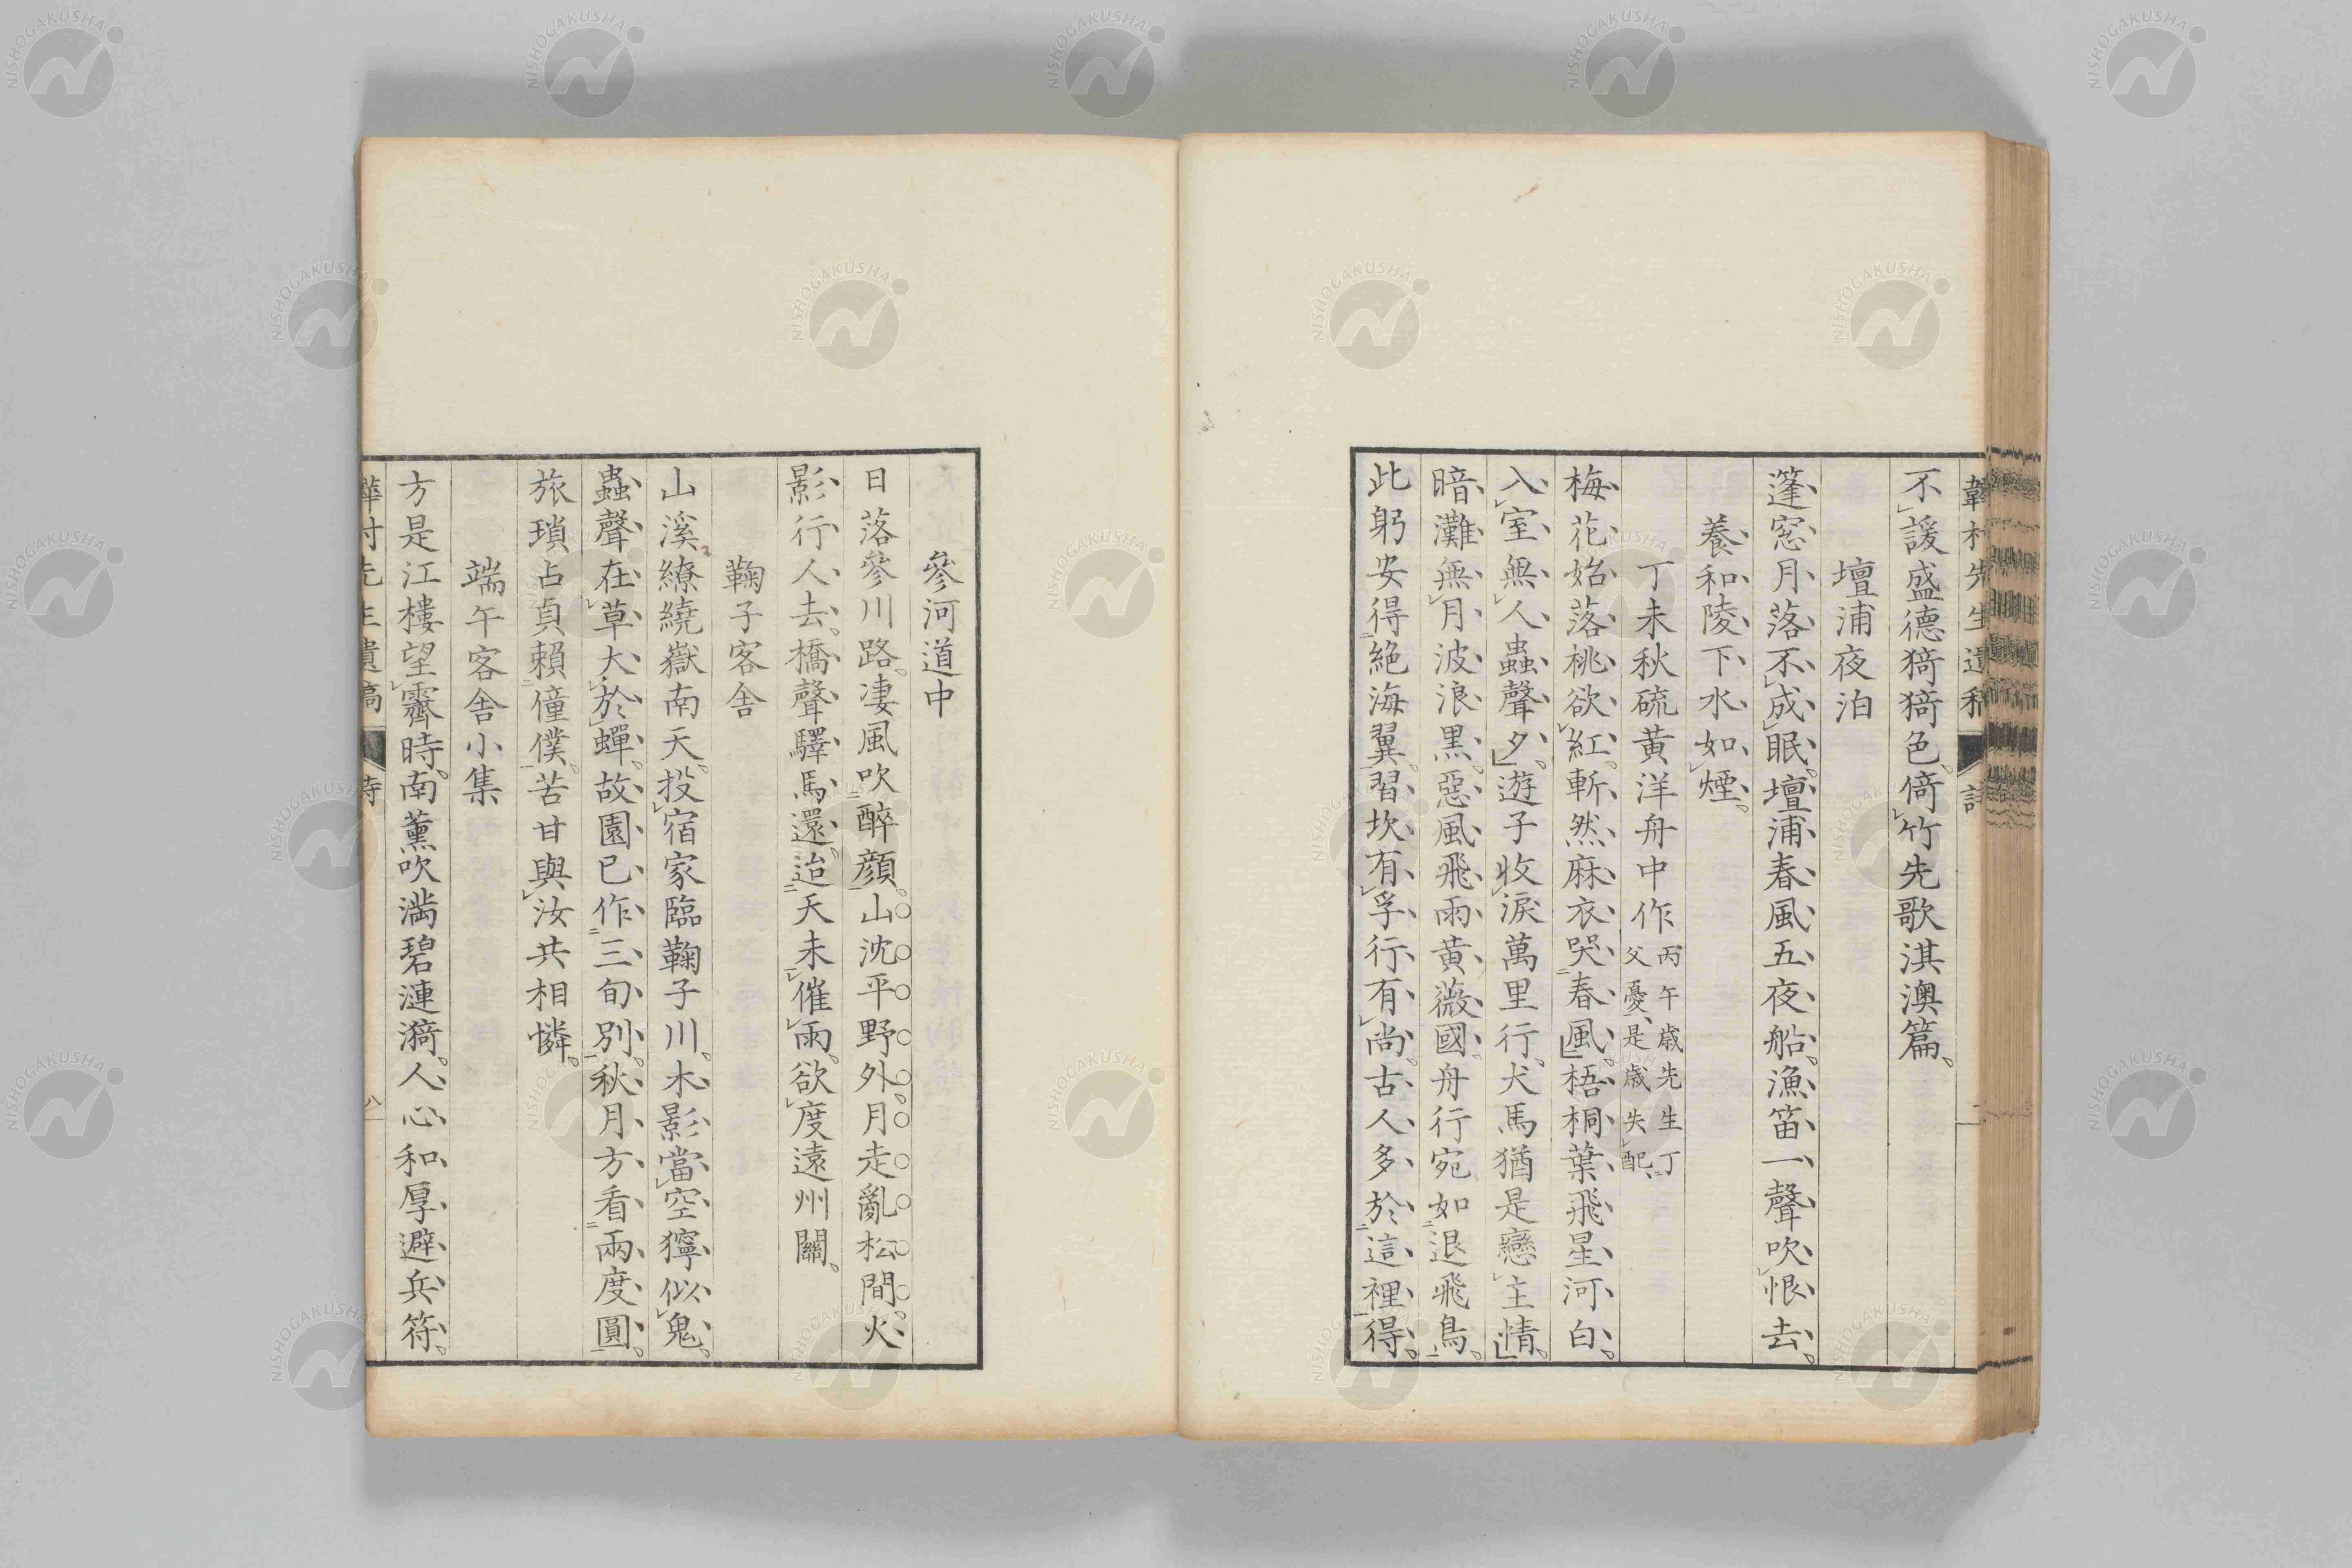 不諼盛德猗猗色倚竹先歌淇澳篇
壇浦夜泊
篷窓月落不成眠壇浦春風五夜船漁笛一聲吹恨去
養和陵下水如煙
丁未秋硫黃洋舟中作 丙午歲先生丁父憂是歲失配
梅花始落桃欲紅斬然麻衣哭春風梧桐葉飛星河白
入室無人蟲聲夕遊子收淚萬里行犬馬猶是戀主情
暗灘無月波浪黑惡風飛雨黃薇國舟行宛如退飛鳥
此躬安得絕海翼習坎有孚行有尚古人多於這裡得
參河道中
日落參川路凄風吹醉顏山沈平野外月走亂松間火
影行人去橋聲驛馬還迨天未催雨欲度遠州關
鞠子客舍
山溪繚繞嶽南天投宿家臨鞠子川木影當空獰似鬼
蟲聲在草大於蟬故園已作三旬別秋月方看兩度圓
旅瑣占貞賴僮僕苦甘與汝共相憐
端午客舍小集
方是江樓望霽時南薰吹滿碧漣漪人心和厚避兵符
NISHOGAKUSHA